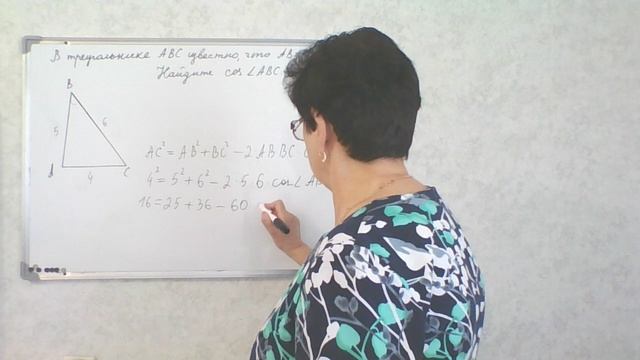 В треугольнике ABC известно, что AB
Найдите cos ∠ABC
B
5
6
A
4
C
AC² = AB² + BC² - 2 AB BC
4² = 5² + 6² - 2 · 5 · 6 · cos ∠ A
16 = 25 + 36 - 60